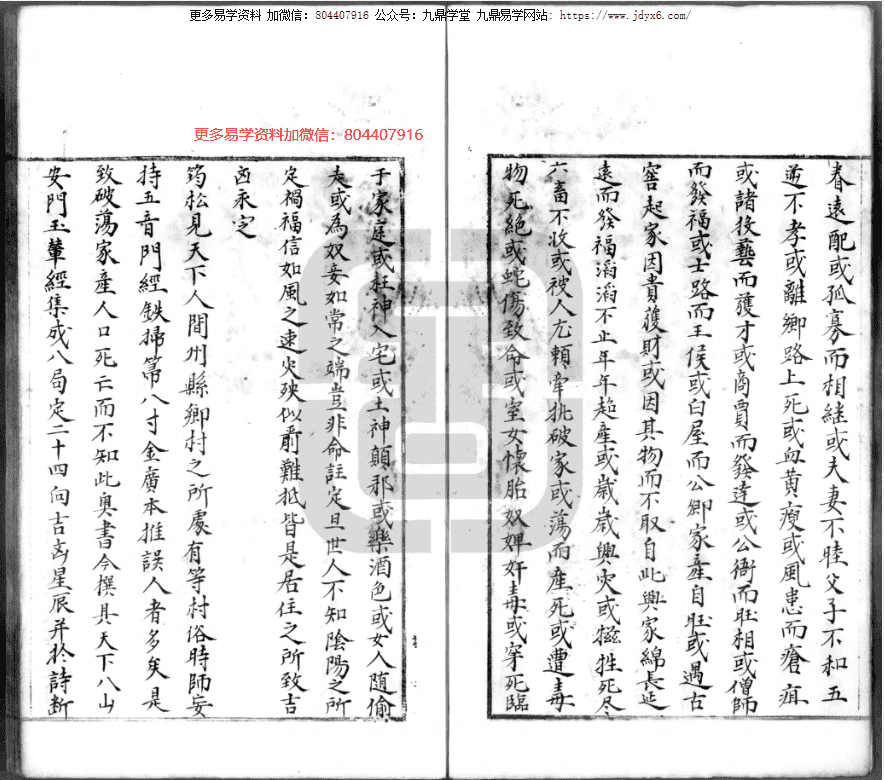 更多易学资料 加微信：804407916 公众号：九鼎学堂 九鼎易学网站：https://www.jdyx6.com/
更多易学资料加微信：804407916
眷遠配或孤寡而相継或夫妻不睦父子不和五
逆不孝或離鄉路上死或血黄瘦或風患而瘡疽
或諸技藝而獲才或商賈而發達或公衙而旺相或僧師
而發福或士路而王侯或白屋而公卿家產自旺或遇古
窖起家因貴獲財或因其物而不取自此興家綿長延
遠而發福滔滔不止年年趂產或歲歲興灾或犠牲死尽
六畜不收或被人尤頼牽扯破家或蕩而産死或遭毒
物死絕或蛇傷致命或室女懷胎奴婢奸毒或穿死臨
于家庭或枉神入宅或土神顛那或樂酒色或女人随偷
走或為奴妾如常之端豈非命註定且世人不知陰陽之所
定禍福信如風之速灾殃似箭難抵皆是居住之所致吉
凶永定
筠松見天下人間州縣鄉村之所處有等村俗時師妄
持五音門經鉄掃箒八寸金廣本推誤人者多矣是
致破蕩家產人口死亡而不知此奥書今撰具天下八山
安門玉輦經集成八局定二十四向吉凶星辰并於詩断